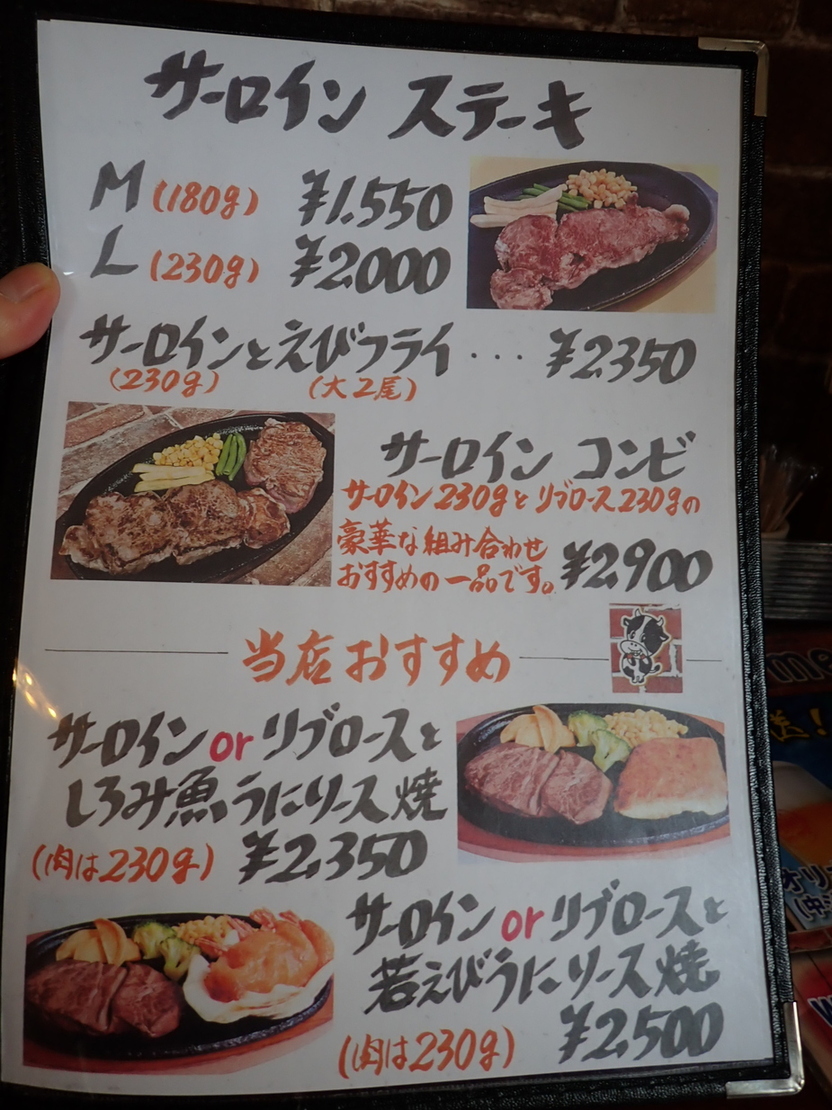 サーロイン ステーキ
M (180g) ¥1.550
L (230g) ¥2.000
サーロインとえびフライ ··· ¥2.350
(230g) (大2尾)
サーロイン コンビ
サーロイン230gとリブロース230gの
豪華な組み合わせ
おすすめの一品です。 ¥2.900
当店おすすめ
サーロイン or リブロースと
しろみ魚うにソース焼
(肉は230g) ¥2.350
サーロイン or リブロースと
若えびうにソース焼
¥2.500
(肉は230g)